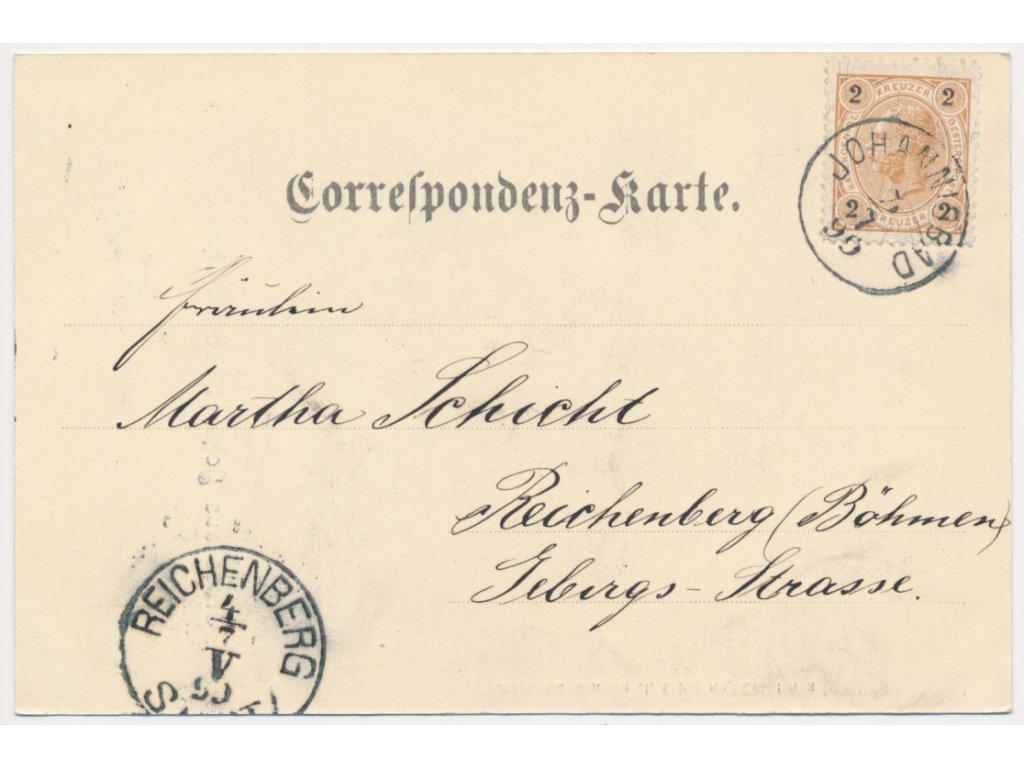 2 KREUZER 2
2 KREUZER 2
JOHANNISBAD
99
Correspondenz-Karte.
Fräulein
Martha Schicht
Reichenberg (Böhmen)
Gebirgs-Strasse.
REICHENBERG
4/7
V
99